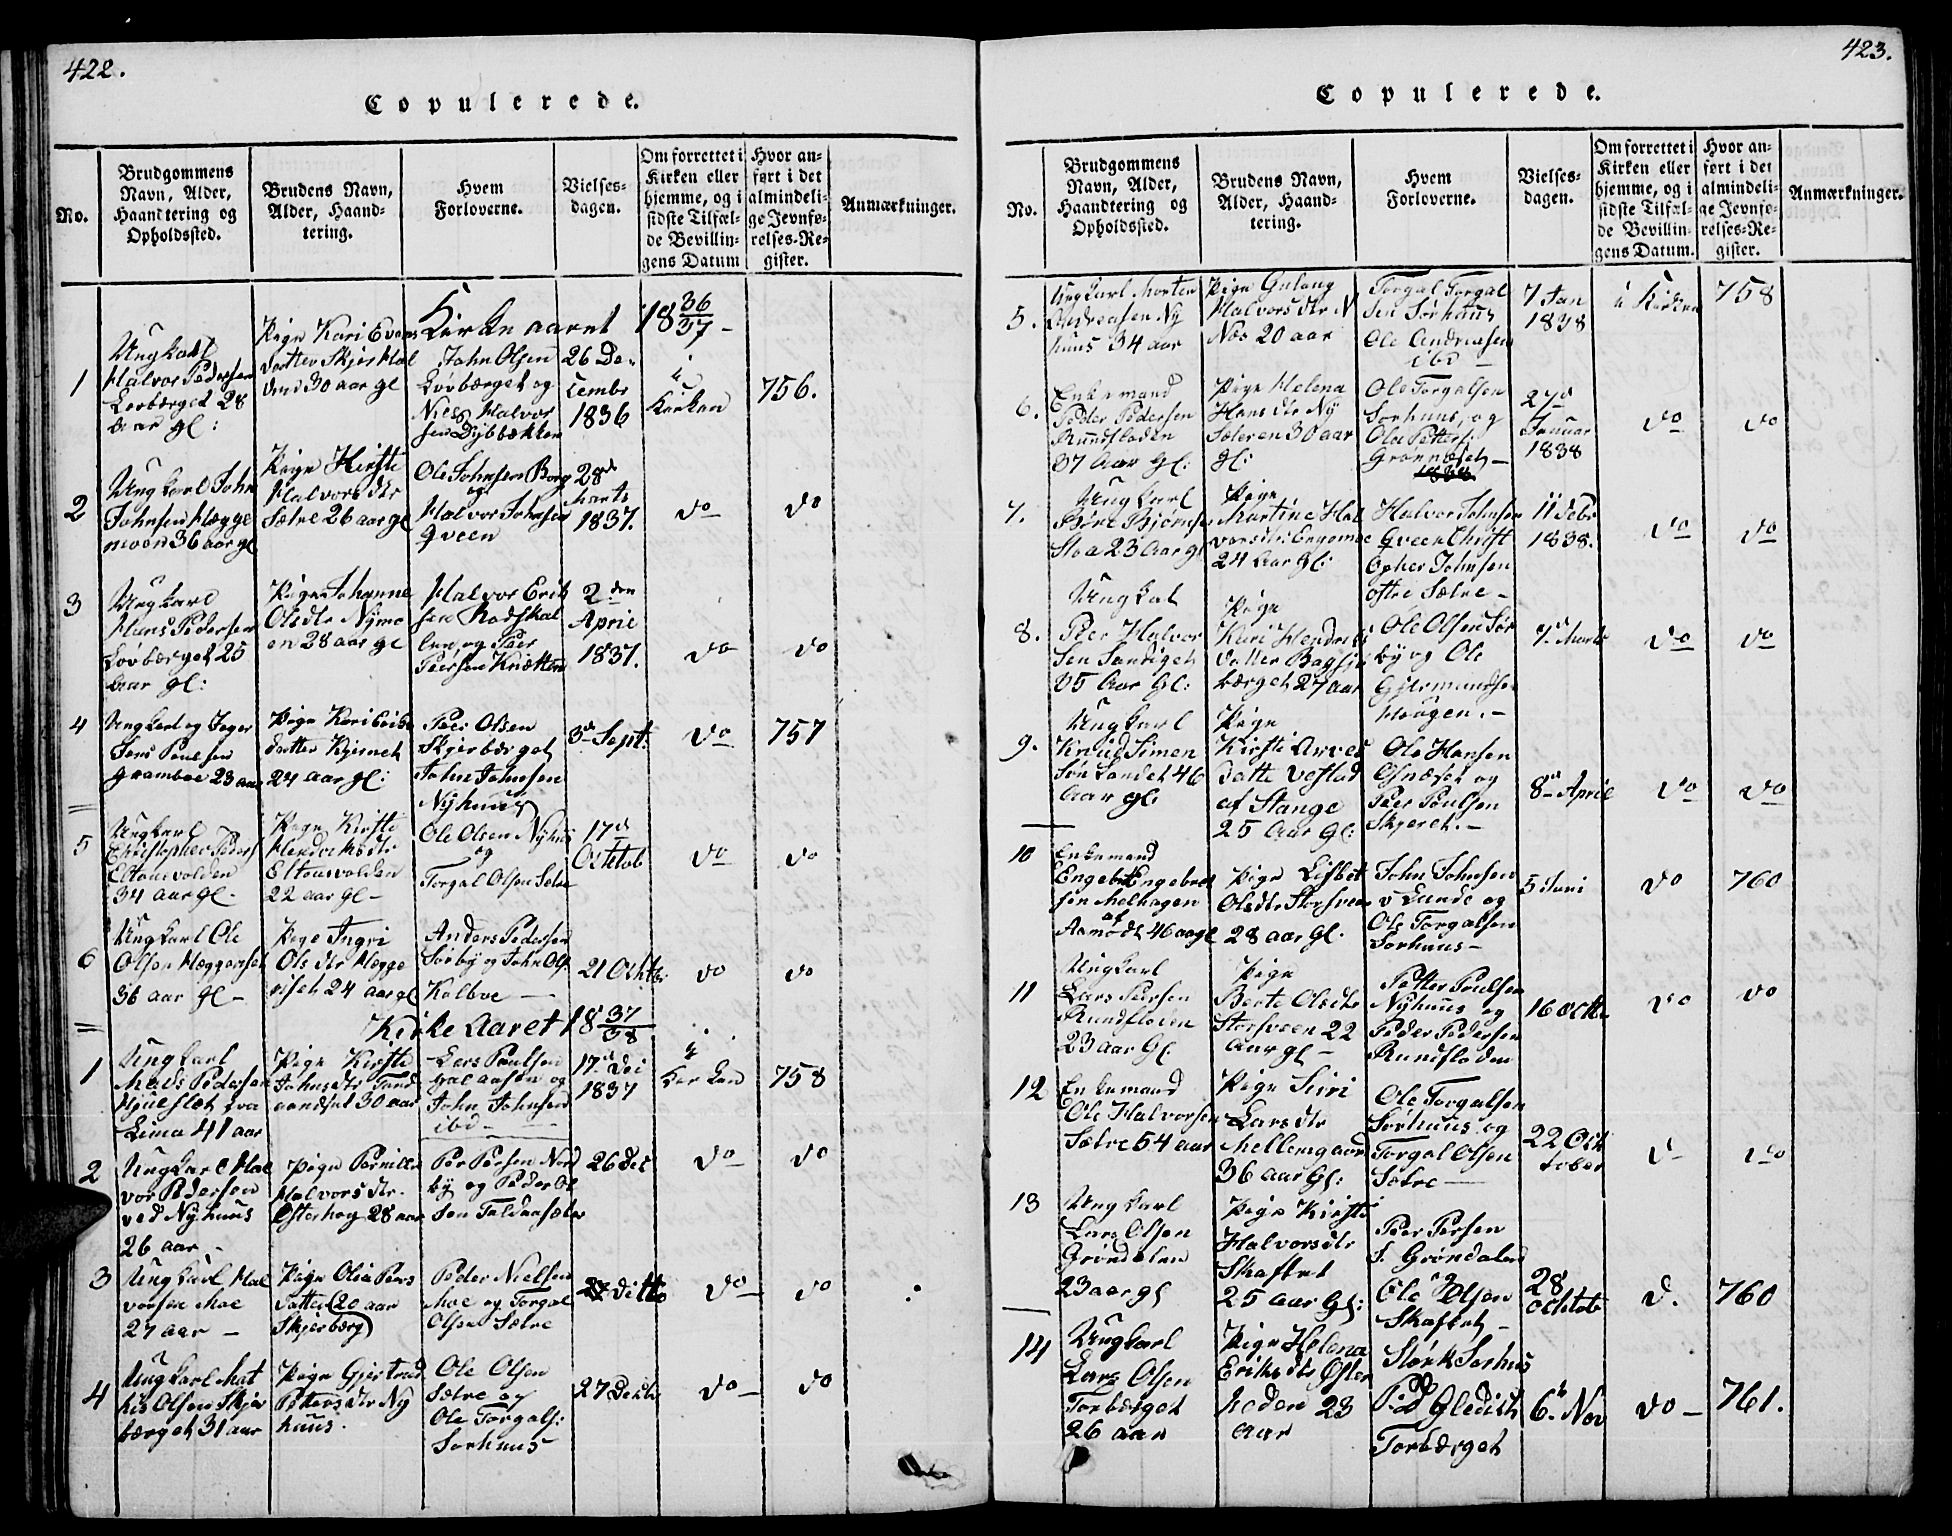 422.
Copulerede.
No.
Brudgommens
Navn, Alder,
Haandtering og
Opholdssted.
Brudens Navn,
Alder, Haand-
tering.
Hvem
Forloverne.
Vielses-
dagen.
Om forrettet i
Kirken eller
hjemme, og i
sidste Tilfæl-
de Bevillin-
gens Datum
Hvor an-
ført i det
almindeli-
ge Jevnfø-
relses-Re-
gister.
Anmærkninger.
Kirke aaret 18 36/37 -
1
Ungkarl
Halvor Pedersen
Lovbærget 28
aar gl:
Pige Kari Evens
datter Skjærhol
den 30 aar gl
John Olsen
Lovbærget og
Niels Halvor
sen Dybbækken
26 De-
cembr
1836
i
Kirken
756.
2
Ungkarl John
Johnsen Hægge
moen 36 aar gl
Pige Kirsti
Halvors dtr
Sætre 26 aar gl
Ole Johnsen Borg
og
Halvor Johnsen
Qveen
28de
Marts
1837.
do
do
3
Ungkarl
Hans Pedersen
Lovbærget 25
aar gl:
Pige Johanne
Olsdtr Nymo
en 28 aar gl
Halvor Erik
sen Rodskal
len, og Peer
Peersen Knætten
2den
April
1837.
do
do
4
Ungkarl og Jeger
Jens Poulsen
Gramboe 23 aar
Pige Kari Eriks
datter Kjernet
24 aar gl:
Peer Olsen
Skjerbærget
John Johnsen
Nyhuus
3d Sept:
do
757
5
Ungkarl
Christopher Peders
Eltonvolden
34 aar gl -
Pige Kirsti
Hendriksdtr
Eltonvolden
22 aar gl -
Ole Olsen Nyhuus
og
Torgal Olsen Setre
17d
Octob
do
do
6
Ungkarl Ole
Olsen Hæggeriset
36 aar gl -
Pige Ingri
Ols dtr Hægge
riset 24 aar gl
Anders Pedersen
Sörby og John Ols:
Kolboe
21 Ochtb:
do
do
Kirke Aaret 18 37/38
1
Ungkarl
Mads Pedersen
Lima 41 aar
Pige Kirsti
30 aar
Lars Poulsen
og
John Johnsen
ibd -
17d Dei
1837
i
Kirken
758
2
Ungkarl Hal
vor Pedersen
ved Nyhuus
26 aar -
Pige Pernille
Halvors dtr.
Osterhag 28 aar
Per Persen Nord
by og Peder Ol
sen
26 Dec
do
do
3
Ungkarl Hal
vorsen Moe
27 aar -
Pige Olia Pers
Datter 20 aar
Skjerberg
Peder Nielsen
Moe og Torgal
Olsen Sætre
27 Ditto
do
do
4
Ungkarl Mat
his Olsen Skjær
bærget 31 aar
Pige Gjertrud
Petersdtr Ny
huus.
Ole Olsen
Sætre og
Ole Torgals:
Sorhuus
27 Decbr
do -
do
423.
Copulerede.
No.
Brudgommens
Navn, Alder,
Haandtering og
Opholdssted.
Brudens Navn,
Alder, Haand-
tering.
Hvem
Forloverne.
Vielses-
dagen.
Om forrettet i
Kirken eller
hjemme, og i
sidste Tilfæl-
de Bevillin-
gens Datum.
Hvor an-
ført i det
almindeli-
ge Jevnfø-
relses-Re-
gister.
Anmærkninger.
5.
Ungkarl Morten
Andreasen Ny
huus 34 aar
Pige Gulaug
Halvorsdtr N
Næs 20 aar
Torgal Torgal
sen Sørhuus
Ole Andreasen
ibd
7 Jan
1838
i Kirken
758
6.
Enkemand
Peder Pedersen
Rundfloden
37 Aar gl:
Pige Helena
Hans dtr Ny
Sæteren 30 aar
gl:
Ole Torgalsen
Sorhuus, og
Ole Petters
Grønnæset
1838
27d
Januar
1838
do
do
7.
Ungkarl
Björn Björnsen
Stoa 23 Aar gl
Pige
Martine Hal
vorsdtr Engemoe
24 Aar gl:
Halvor Johnsen
Qveen Christ
Opher Johnsen
østre Sætre -
11 Febr
1838.
do
do
8.
Ungkal
Peer Halvor
Sen Sandiget
35 Aar gl:
Pige
Kari Hendriks
datter
bærget 27 aar
Ole Olsen Sør
by og Ole
Gulmundsen
Haugen. -
7d Marts
do
do
9.
Ungkarl
Knud Simen
Søn Landet 46
Aar gl:
Pige
Kirsti Arves
Datte Vestad
af Stange
25 Aar gl:
Ole Hansen
Osnæset og
Peer Poulsen
Skjæret. -
8d April
do
do
10
Enkemand
Engebret Engebret
sen Melhagen
af
Aamodt 46 aar gl
Pige Lisbet
Olsdtr Storsveen
28 aar gl.
John Johnsen
v Lunde og
Ole Torgalsen
Sorhuus -
5 Juni
do
760
11
Ungkarl
Lars Peersen
Rundfloden
23 Aar gl:
Pige
Berte Olsdtr
Storsveen 22
Aar gl -
Petter Poulsen
Nyhuus og
Peder Pedersen
Rundfloden
16 Octbr
do
do
12
Enkemand
Ole Halvorsen
Sætre 54 aar
Pige Siri
Larsdtr
Mellemgaard
36 aar gl:
Ole Torgalsen
Sørhuus og
Torgal Olsen
Sætre
22 Oc
tober
d
do
13
Ungkarl
Lars Olsen
Grøndalen
23 aar gl
Pige Kirsti
Halvorsdtr
Skaftet
25 aar gl:
Peer Persen
S. Grøndalen
og
Ole Olsen
Skaftet -
28
Ochtob
d.
760
14
Ungkarl
Lars Olsen
Torbærget
26 aar
Pige Helena
Eriksdtr Øster
heden 23
aar
Størk Sorhus
og
P: Gledish
Torbærget
6. Nov
do -
761.